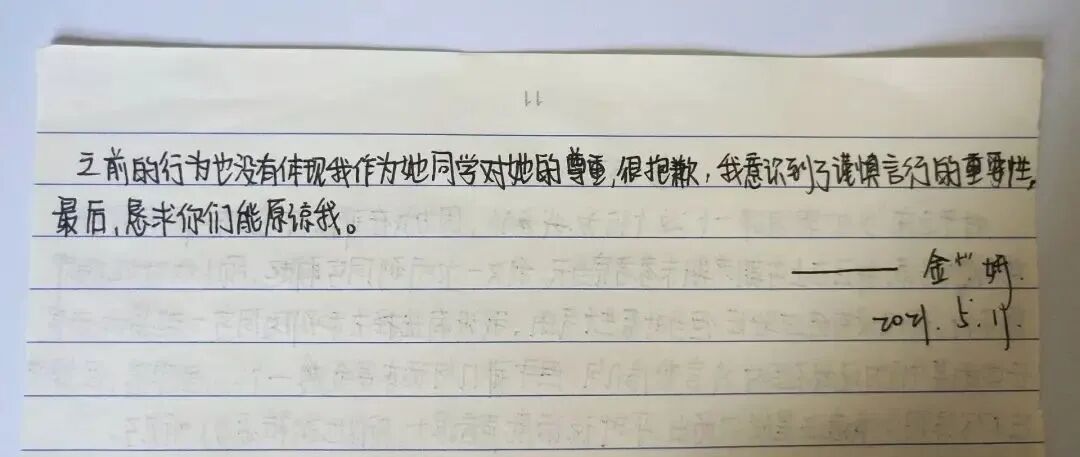 11
之前的行为也没有体现我作为她同学对她的尊重,很抱歉,我意识到了谨慎言行的重要性,
最后,恳求你们能原谅我。
—— 金
2021. 5.